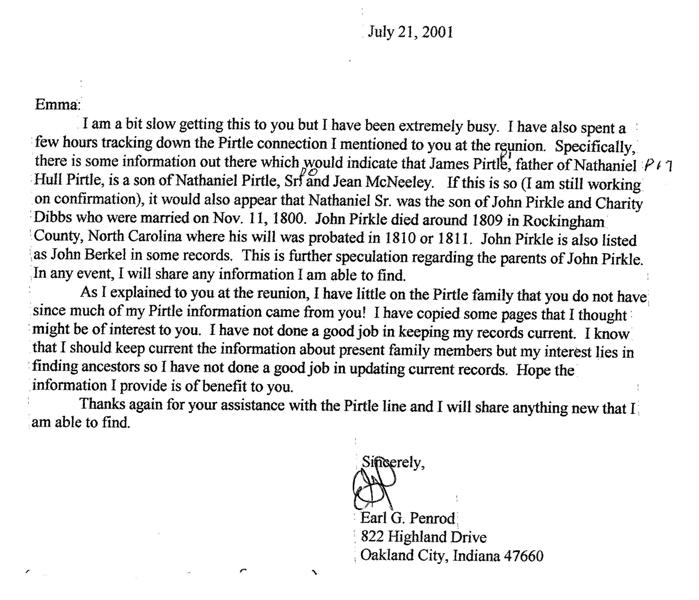 July 21, 2001
Emma:
I am a bit slow getting this to you but I have been extremely busy. I have also spent a
few hours tracking down the Pirtle connection I mentioned to you at the reunion. Specifically,
there is some information out there which would indicate that James Pirtle, father of Nathaniel P17
Hull Pirtle, is a son of Nathaniel Pirtle, Sr. and Jean McNeeley. If this is so (I am still working
on confirmation), it would also appear that Nathaniel Sr. was the son of John Pirkle and Charity
Dibbs who were married on Nov. 11, 1800. John Pirkle died around 1809 in Rockingham
County, North Carolina where his will was probated in 1810 or 1811. John Pirkle is also listed
as John Berkel in some records. This is further speculation regarding the parents of John Pirkle.
In any event, I will share any information I am able to find.
As I explained to you at the reunion, I have little on the Pirtle family that you do not have
since much of my Pirtle information came from you! I have copied some pages that I thought
might be of interest to you. I have not done a good job in keeping my records current. I know
that I should keep current the information about present family members but my interest lies in
finding ancestors so I have not done a good job in updating current records. Hope the
information I provide is of benefit to you.
Thanks again for your assistance with the Pirtle line and I will share anything new that I
am able to find.
Sincerely,
Earl G. Penrod
822 Highland Drive
Oakland City, Indiana 47660